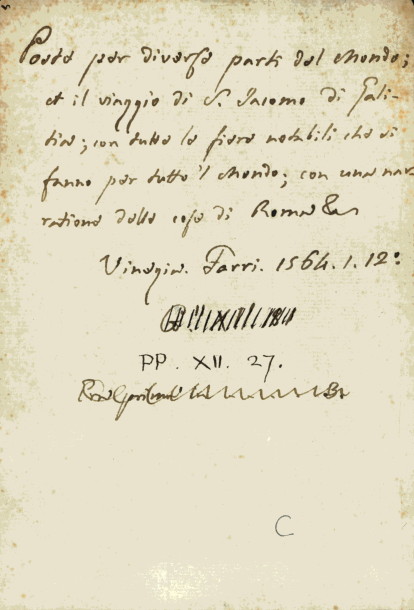 Poste per diverse parti del Mondo;
et il viaggio di S. Jacomo di Gali-
tia; con tutte le fiere notabili che si
fanno per tutto 'l Mondo; con una nar-
ratione delle cose di Roma &c
Vinegia. Farri. 1564. 1. 12:
PP. XII. 27.
C